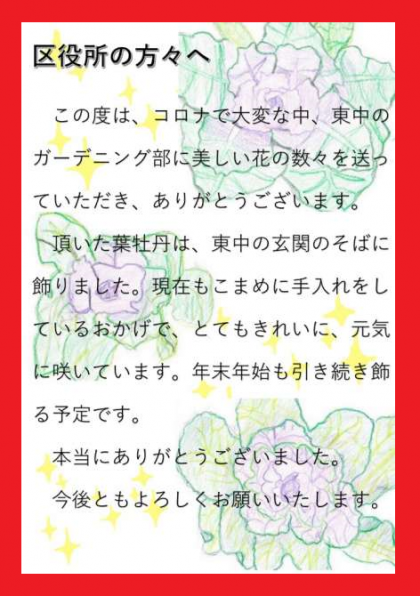 区役所の方々へ
この度は、コロナで大変な中、東中の
ガーデニング部に美しい花の数々を送っ
ていただき、ありがとうございます。
頂いた葉牡丹は、東中の玄関のそばに
飾りました。現在もこまめに手入れをし
ているおかげで、とてもきれいに、元気
に咲いています。年末年始も引き続き飾
る予定です。
本当にありがとうございました。
今後ともよろしくお願いいたします。